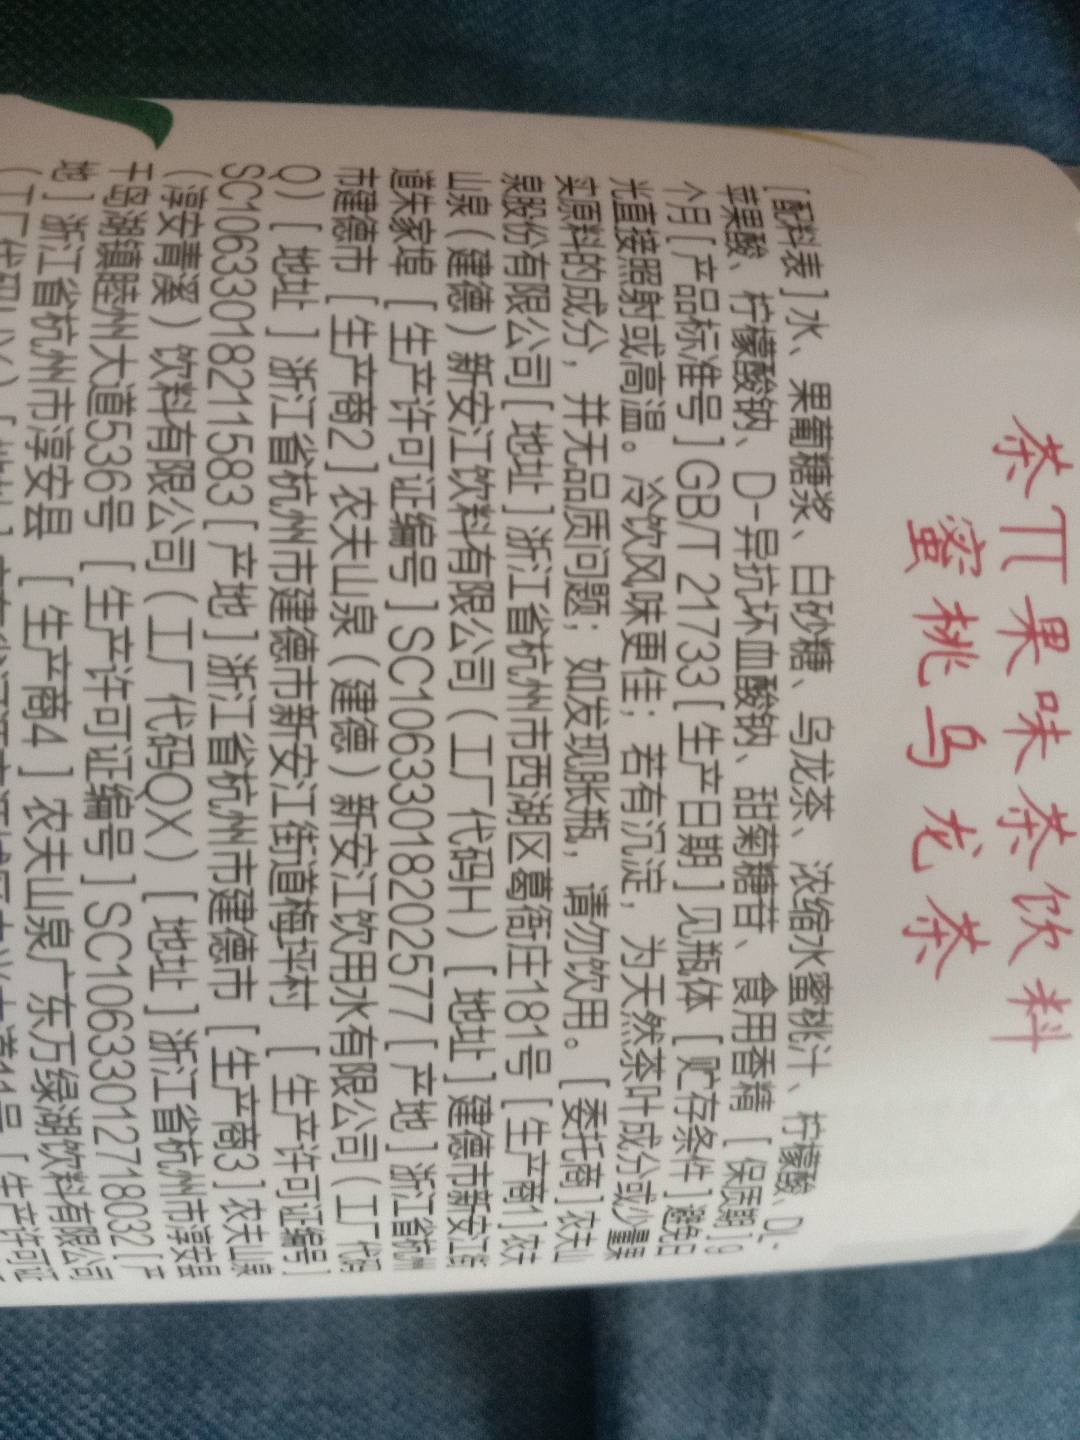 茶π果味茶饮料
蜜桃乌龙茶
[配料表]水、果葡糖浆、白砂糖、乌龙茶、浓缩水蜜桃汁、柠檬酸、DL-
苹果酸、柠檬酸钠、D-异抗坏血酸钠、甜菊糖苷、食用香精 [保质期]9
个月[产品标准号]GB/T 21733[生产日期]见瓶体 [贮存条件]避免日
光直接照射或高温。冷饮风味更佳；若有沉淀，为天然茶叶成分或少量果
实原料的成分，并无品质问题；如发现胀瓶，请勿饮用。[委托商]农夫山
泉股份有限公司[地址]浙江省杭州市西湖区葛衙庄181号[生产商1]农夫
山泉（建德）新安江饮料有限公司（工厂代码H）[地址]建德市新安江街
道朱家埠 [生产许可证编号]SC10633018202577[产地]浙江省杭州
市建德市 [生产商2]农夫山泉（建德）新安江饮用水有限公司（工厂代码
Q）[地址]浙江省杭州市建德市新安江街道梅坪村 [生产许可证编号]
SC10633018211583[产地]浙江省杭州市建德市 [生产商3]农夫山泉
（淳安青溪）饮料有限公司（工厂代码QX）[地址]浙江省杭州市淳安县
千岛湖镇睦州大道536号 [生产许可证编号]SC10633012718032[产
地]浙江省杭州市淳安县 [生产商4]农夫山泉广东万绿湖饮料有限公司